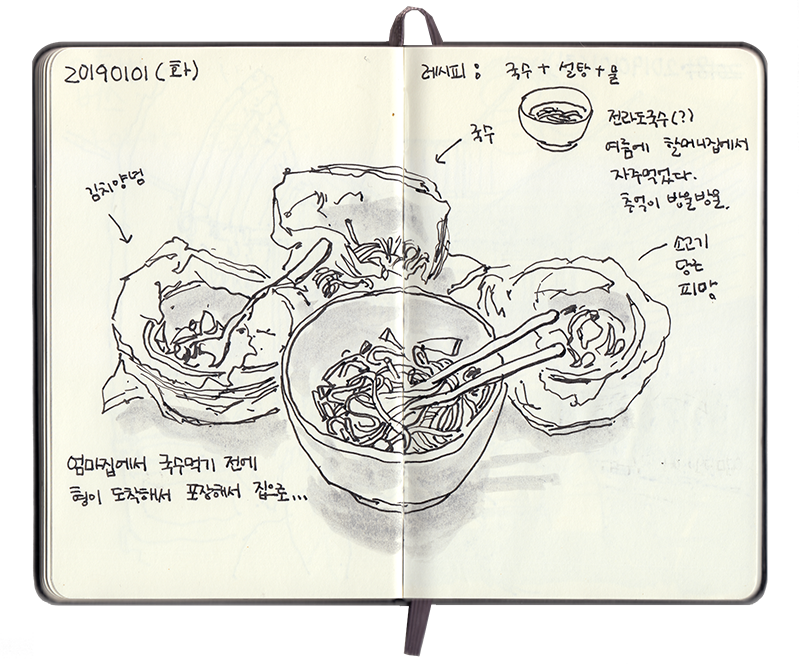 20190101 (화)
레시피 : 국수 + 설탕 + 물
전라도국수(?)
여름에 할머니집에서
자주먹었다.
추억이 방울방울.
국수
김치양념
소고기
담은
피망
엄마집에서 국수먹기 전에
형이 도착해서 포장해서 집으로...